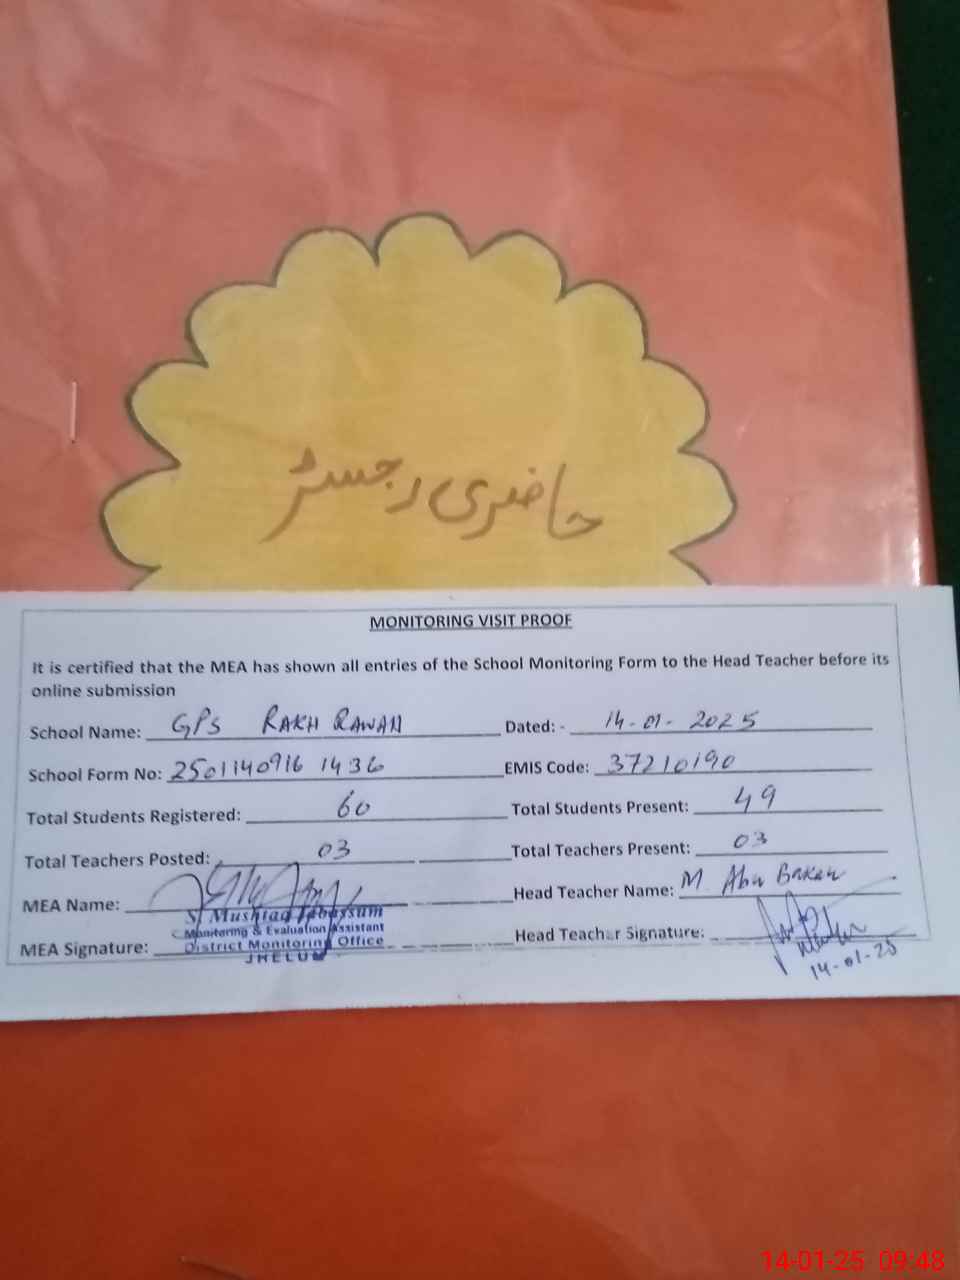 حاضری رجسٹر
MONITORING VISIT PROOF
It is certified that the MEA has shown all entries of the School Monitoring Form to the Head Teacher before its
online submission
School Name: GPS RAKH RAWAN Dated: - 14-01-2025
School Form No: 2501140916 1436 EMIS Code: 37210190
Total Students Registered: 60 Total Students Present: 49
Total Teachers Posted: 03 Total Teachers Present: 03
MEA Name: Head Teacher Name: M. Abu Bakar
S. Mushtaq Tabassum
Monitoring & Evaluation Assistant
MEA Signature: District Monitoring Office Head Teacher Signature:
JHELUM 14-01-25
14-01-25 09:48